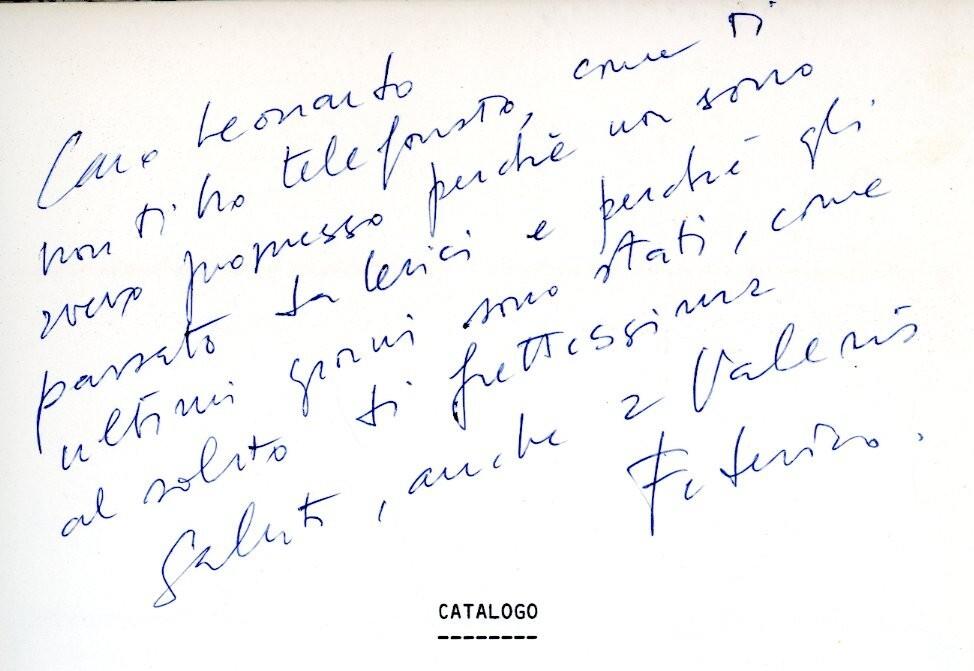 Caro Leonardo
non ti ho telefonato, come ti
avevo promesso perchè non sono
passato da Lerici e perchè gli
ultimi giorni sono stati, come
al solito di frettissima
Saluti, anche a Valeria
Federico.
CATALOGO
--------